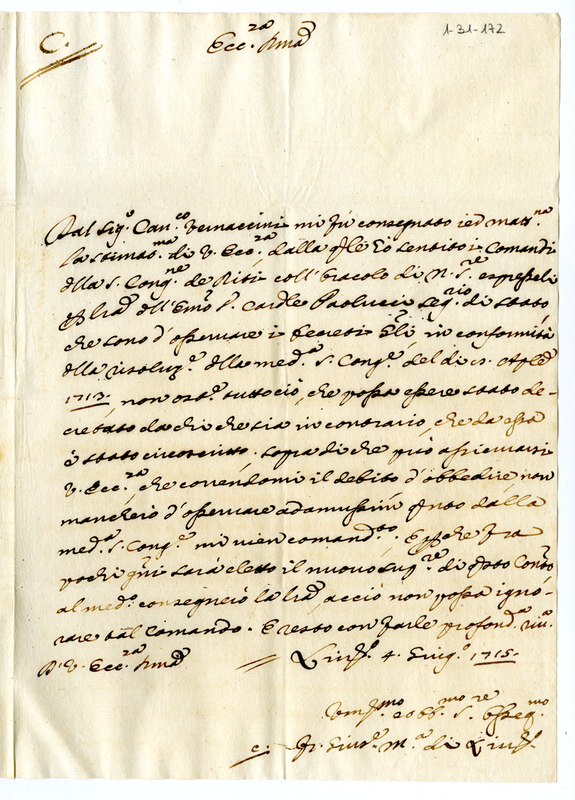 1-31-172
C.
Ecc.za Rma
Dal Sig.r Can.co Vernaccini mi fù consegnata ied matt.na
la stimat.ma di V. Ecc.za dalla qle Io sentito i Comandi
dlla S. Cong.ne de Riti coll'Oracolo di N. S.re espresseli
p lra dell'Emo S. Cardle Paolucci Seg.rio di Stato
che sono d'osservare i Decreti in conformità
dlla risoluz.e dlla med.a S. Cong.e del di
1713. non ost.e tutto ciò, che possa essere stato de-
cretato da chi che sia in contrario, che da essa
è stato circoscritto. Sopra di che può assicurarsi
V. Ecc.za, che correndomi il debito d'obbedire non
mancherò d'osservare adamussim qnto dalla
med.a S. Cong.e mi vien comand.to. E pche fra
pochi gni sarà eletto il nuovo Sup.re di qsto Conto
al med.o consegnerò la lra, acciò non possa igno-
rare tal Comando. E resto con farle profond.a riu.a
D. V. Ecc.za Rma
4. Giug.o 1715.
Um.mo e obb.mo S.re osseq.mo
Fr. M.a di